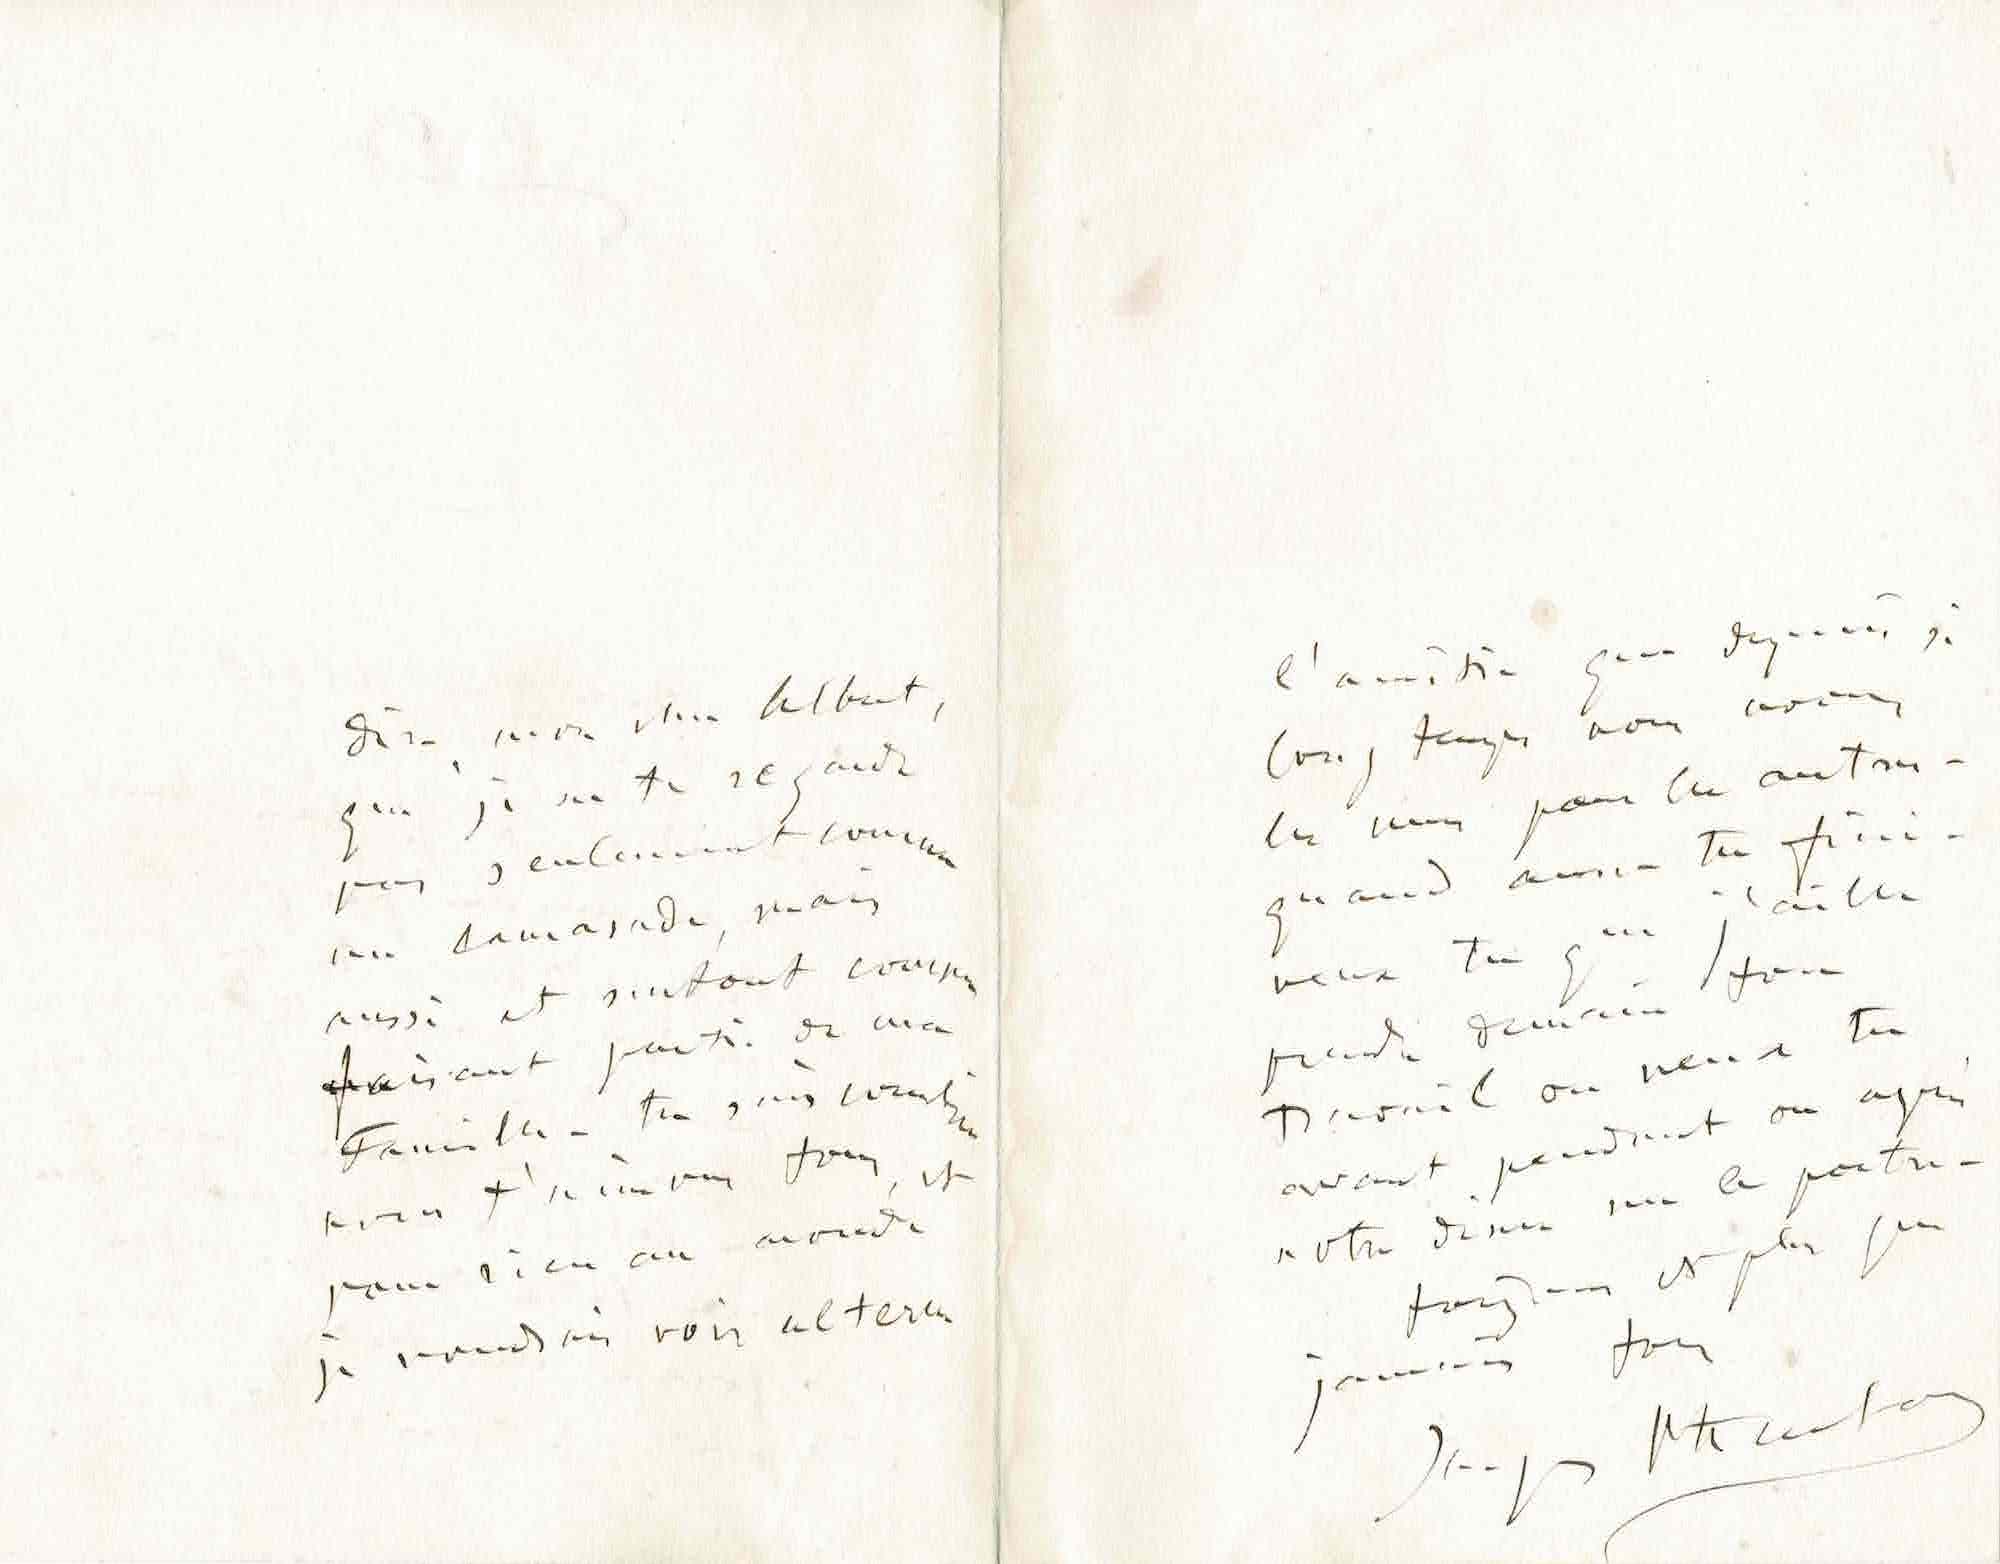 dire, mon cher Albert,
que je ne te regarde
pas seulement comme
un camarade, mais
aussi et surtout comme
faisant partie de ma
famille – tu sais combien
nous t'aimons tous, et
pour rien au monde
je voudrais voir alterer
l'amitié que depuis si
long temps nous avons
les uns pour les autres –
quand auras tu fini –
veux tu que j'aille
prendre demain ton
travail ou veux tu
avant pendant ou après
notre diner me le porter –
toujours et plus que
jamais ton
Jacques